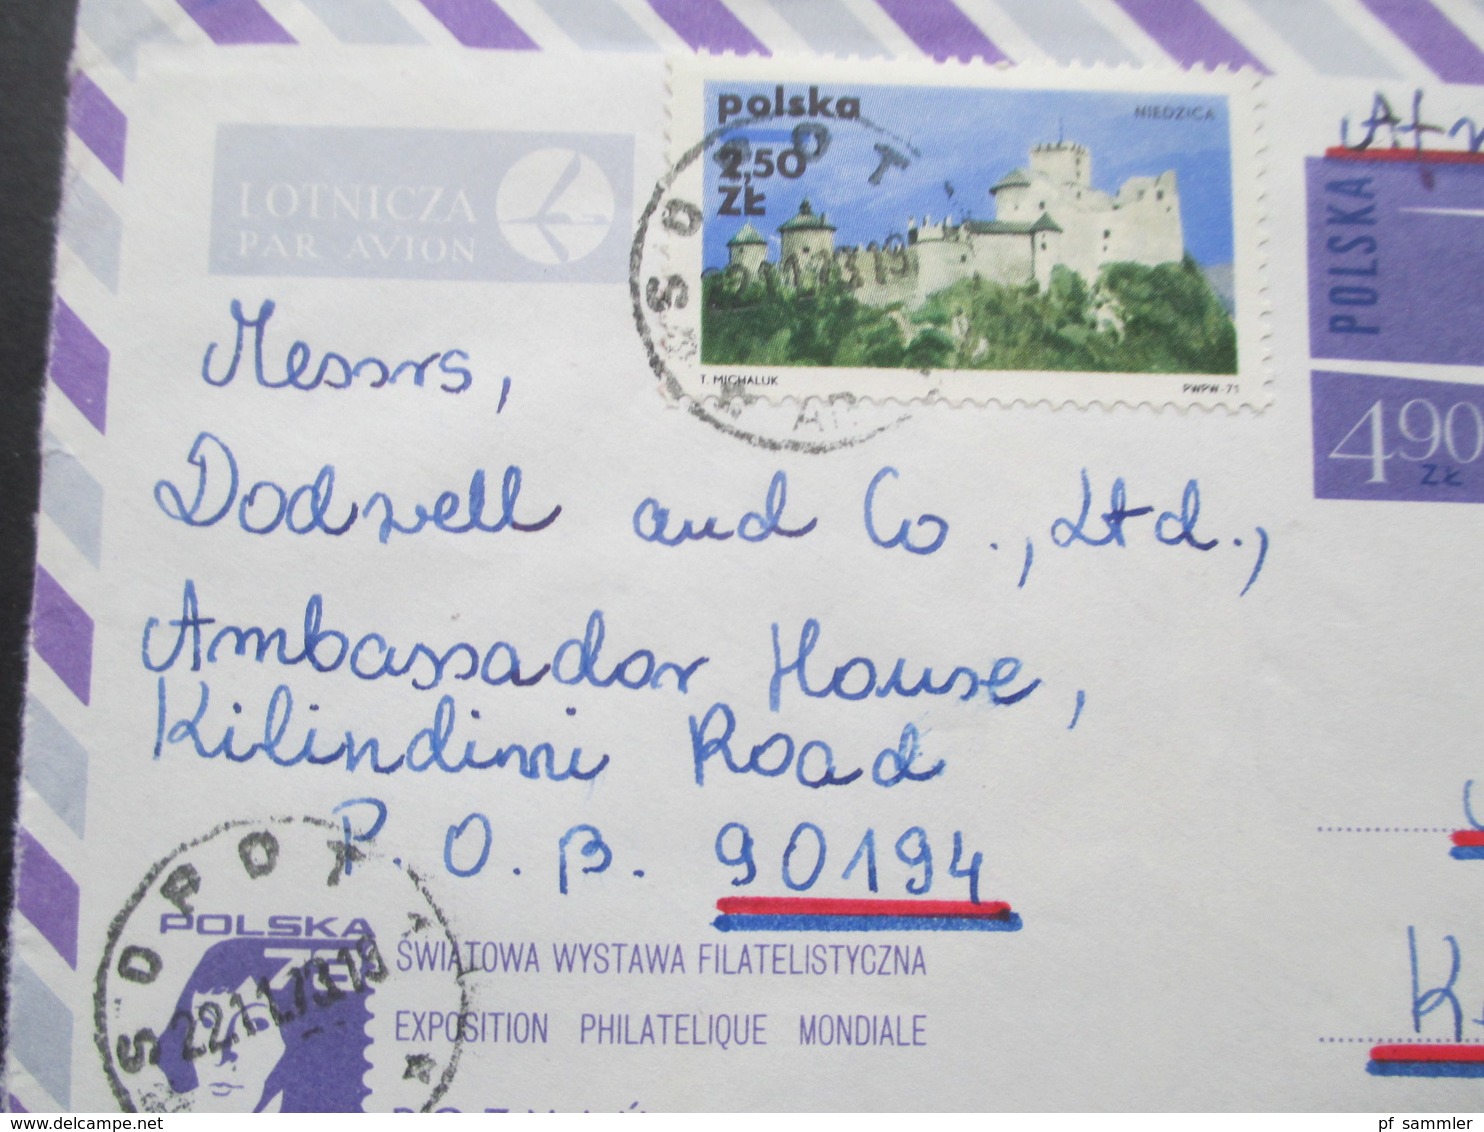 LOTNICZA
PAR AVION
polska
2,50
ZŁ
NIEDZICA
T. MICHALUK
PWPW-71
SOPOT
22.11.73.19
POLSKA
490
ZŁ
Messrs,
Dodwell and Co., Ltd.,
Ambassador House,
Kilindimi Road
P. O. B. 90194
SOPOT
22.11.73.19
POLSKA
73
ŚWIATOWA WYSTAWA FILATELISTYCZNA
EXPOSITION PHILATELIQUE MONDIALE
POZNAŃ
pf_sammler